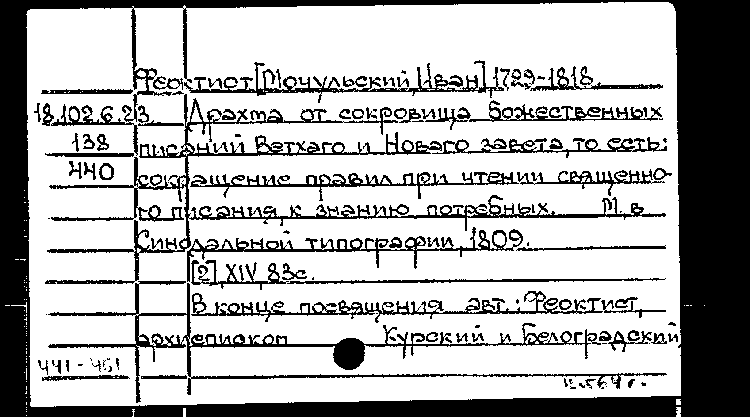 Феоктист [Мочульский, Иван], 1729-1818.
18.102.6.23. Драхма от сокровища божественных
138 писаний Ветхаго и Новаго завета, то есть:
440 сокращение правил при чтении священно-
го писания, к знанию потребных. М., в
Синодальной типографии, 1809.
[2], XIV, 83с.
В конце посвящения авт.: Феоктист,
архиепископ Курский и Белоградский
441-451